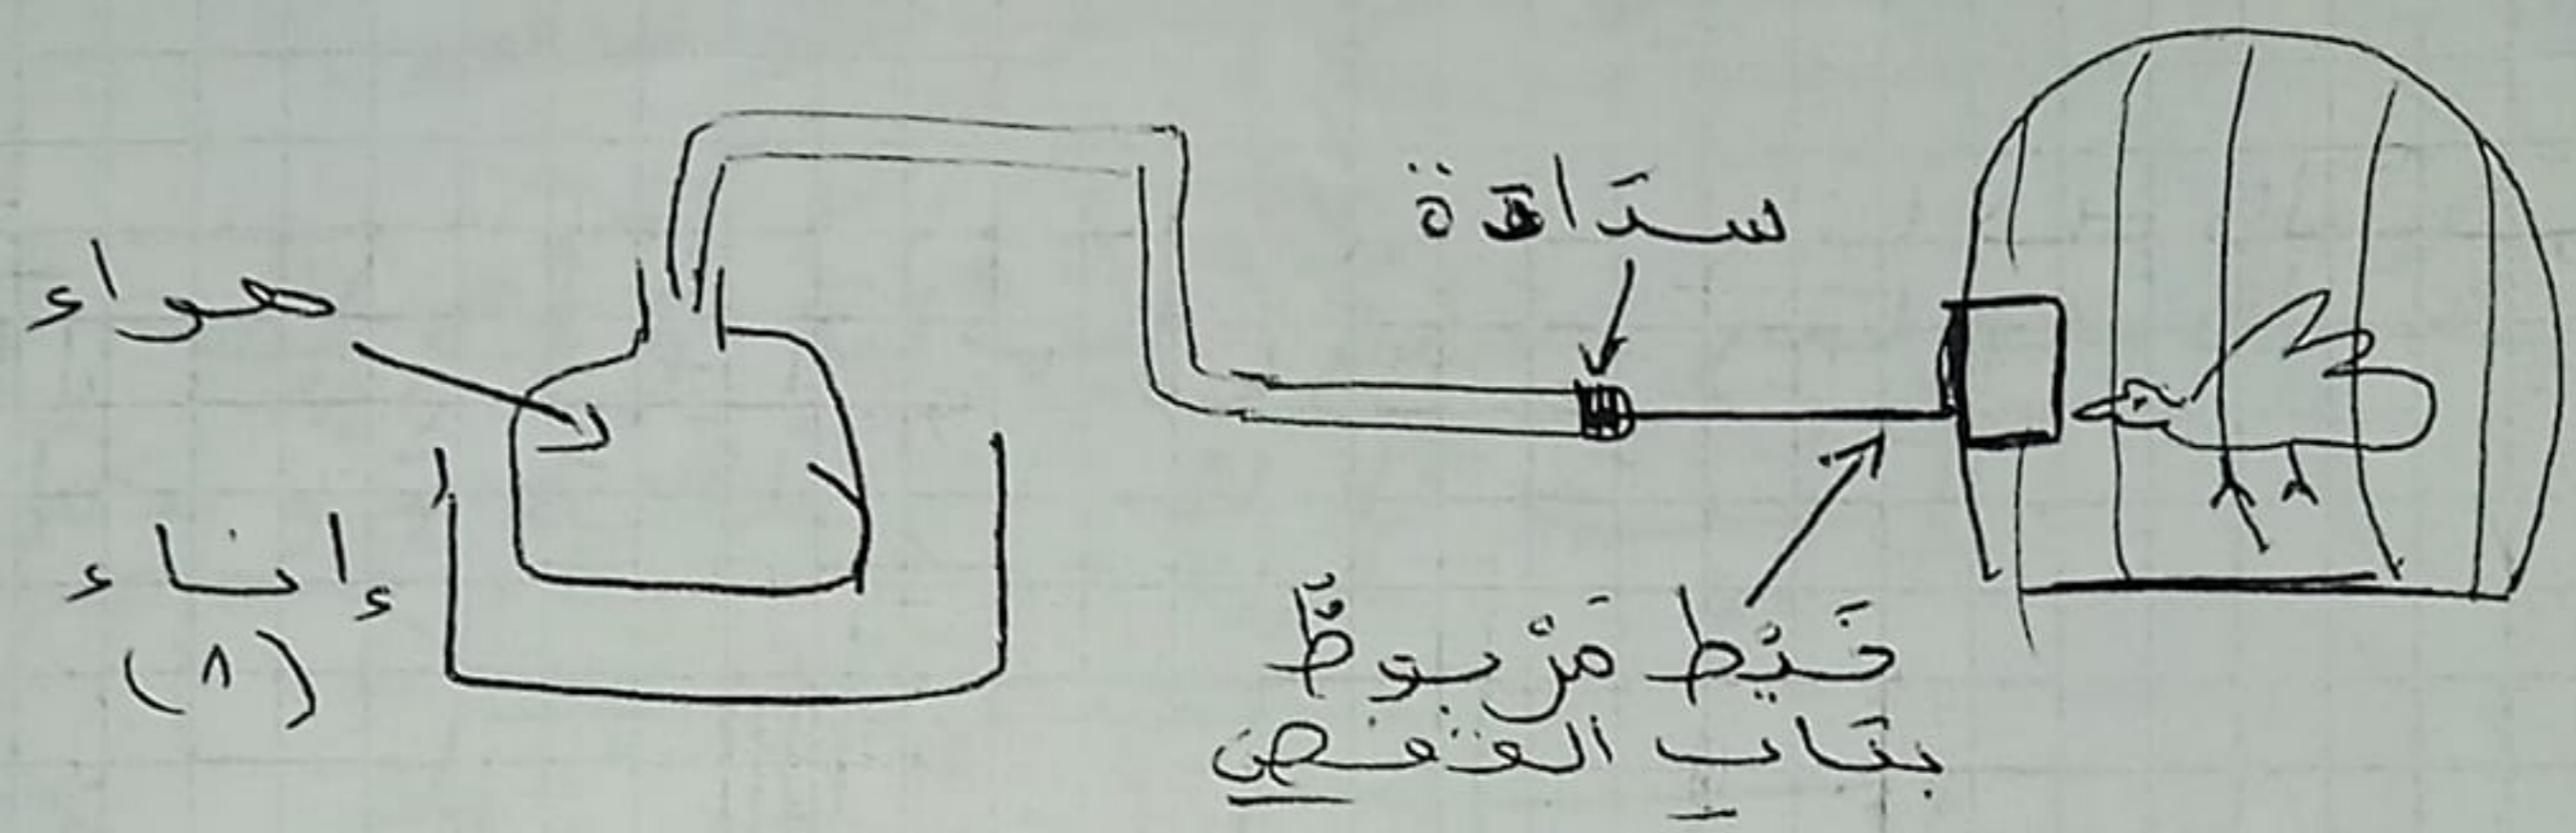 سدَادة
هواء
إناء
(٨)
خَيْط مَرْبوطٌ
ببَاب القفص